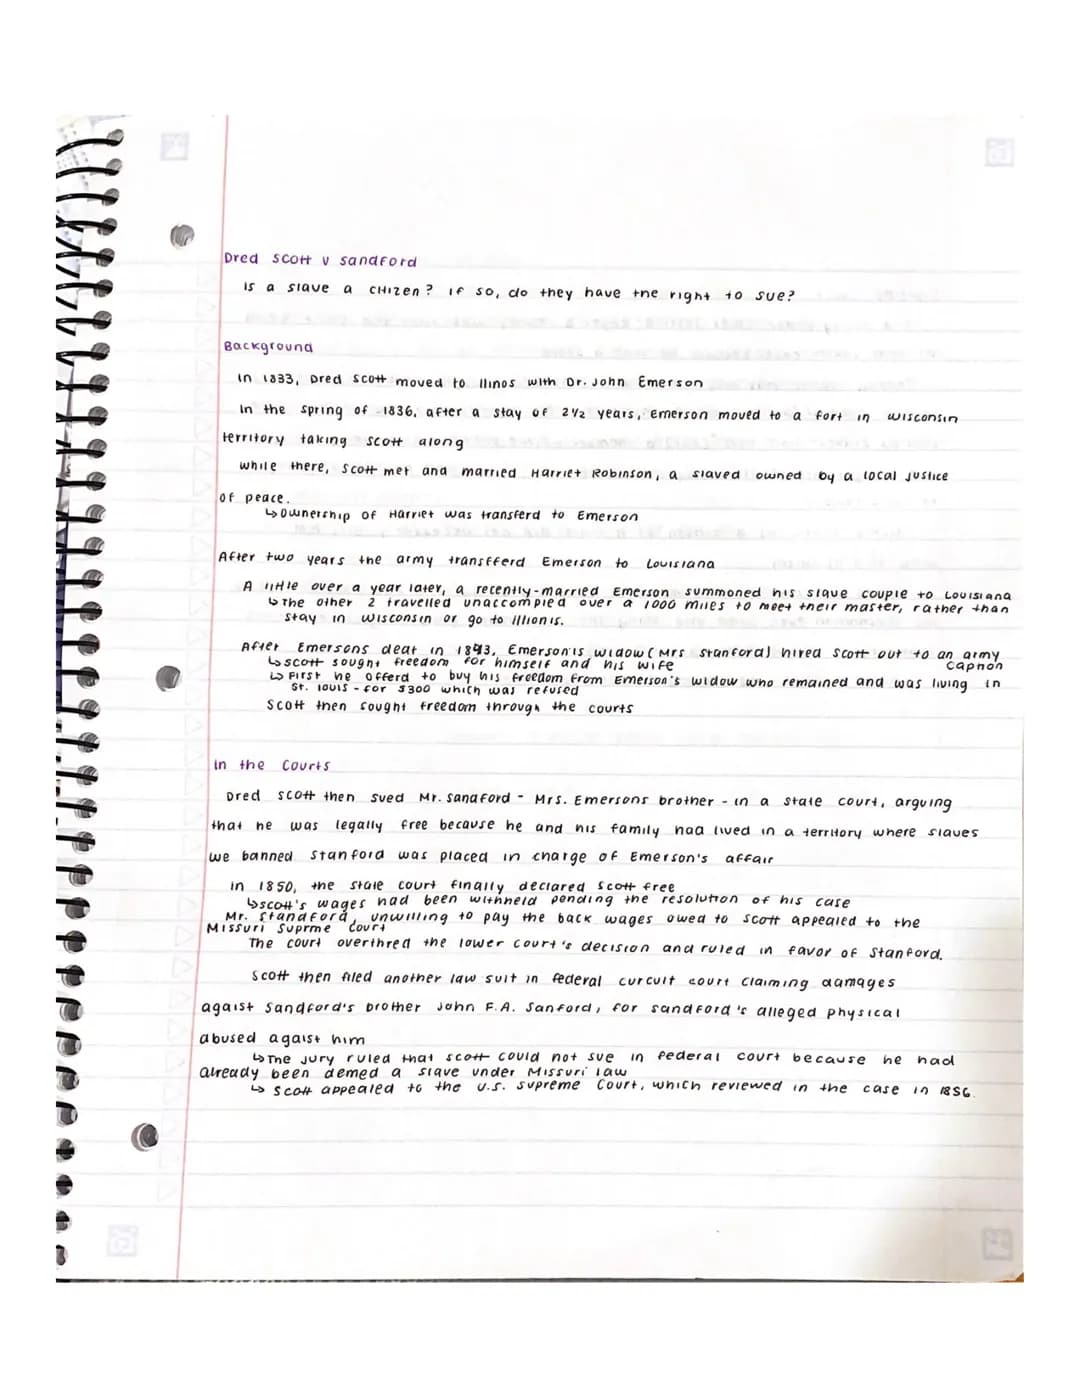 Dred Scott v Sandford
Is a slave a citizen? If so, do they have the right to sue?
Background
In 1833, Dred Scott moved to Ilinos with Dr. John Emerson
In the spring of 1836, after a stay of 2 1/2 years, Emerson moved to a fort in Wisconsin
territory taking Scott along
While there, Scott met and married Harriet Robinson, a slaved owned by a local justice
of peace.
↳ Ownership of Harriet was transferd to Emerson
After two years the army transfferd Emerson to Louisiana
A little over a year later, a recently-married Emerson summoned his slave couple to Louisiana
↳ The other 2 travelled unaccompied over a 1000 miles to meet their master, rather than
stay in Wisconsin or go to Illionis.
After Emersons deat in 1843, Emerson's widow (Mrs Stanford) hired Scott out to an army
capnon
↳ Scott sought freedom for himself and his wife
↳ First he offerd to buy his freedom from Emerson's widow who remained and was living in
St. louis - for $300 which was refused
Scott then sought freedom through the courts
In the Courts
Dred Scott then sued Mr. Sandford - Mrs. Emersons brother - in a state court, arguing
that he was legally free because he and his family had lived in a territory where slaves
we banned Stanford was placed in charge of Emerson's affair
in 1850, the state court finally declared Scott free
↳ Scott's wages had been withheld pending the resolution of his case
Mr. Standford, unwilling to pay the back wages owed to Scott appealed to the
Missuri Suprme Court
The court overthred the lower court's decision and ruled in favor of Stanford.
Scott then filed another law suit in federal curcuit court claiming damages
agaist Sandford's brother John F.A. Sanford, for sandford's alleged physical
abused agaist him
↳ The jury ruled that Scott could not sue in federal court because he had
already been demed a slave under Missuri law
↳ Scott appealed to the U.S. Supreme Court, which reviewed in the case in 1856.